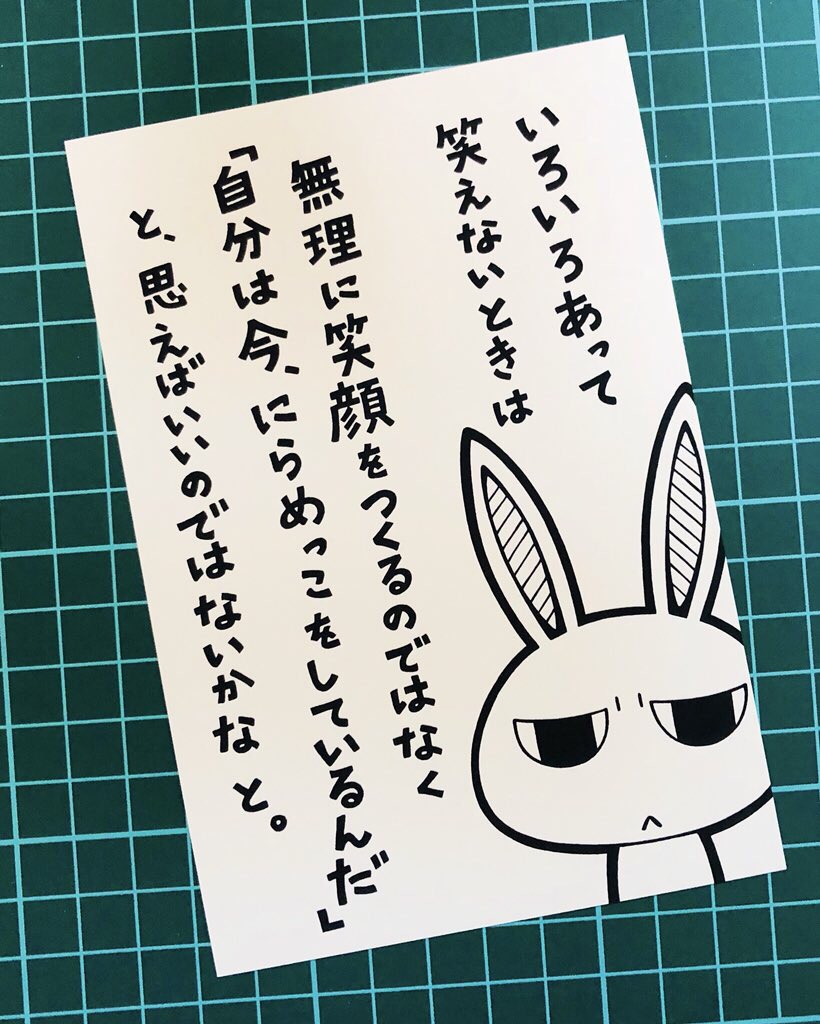 いろいろあって
笑えないときは
無理に笑顔をつくるのではなく
「自分は今、にらめっこをしているんだ」
と、思えばいいのではないかな と。